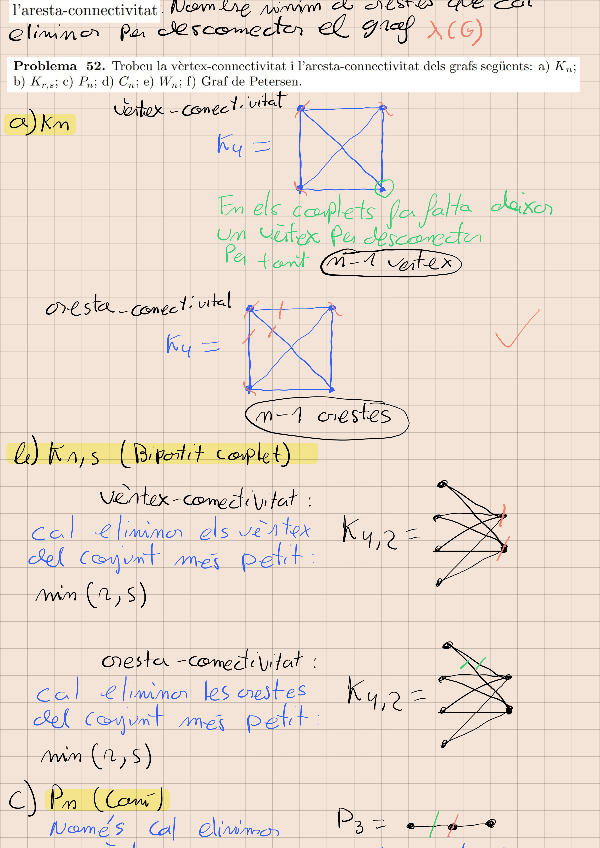 l'aresta-connectivitat. Nombre mínim d'arestes que cal
eliminar per desconnectar el graf λ(G)
Problema 52. Trobeu la vèrtex-connectivitat i l'aresta-connectivitat dels grafs següents: a) Kn;
b) Kr,s; c) Pn; d) Cn; e) Wn; f) Graf de Petersen.
vèrtex-conectivitat
a) Kn
K4 =
En els complets fa falta deixar
un vèrtex per desconectar
Per tant n-1 vertex
aresta-conectivitat
K4 =
n-1 arestes
b) Kr,s (Bipartit complet)
vèrtex-conectivitat:
cal eliminar els vèrtex
K4,2 =
del conjunt més petit:
min (r,s)
aresta-conectivitat:
cal eliminar les arestes
K4,2 =
del conjunt més petit:
min (r,s)
c) Pn (Camí)
Només cal eliminar
P3 =